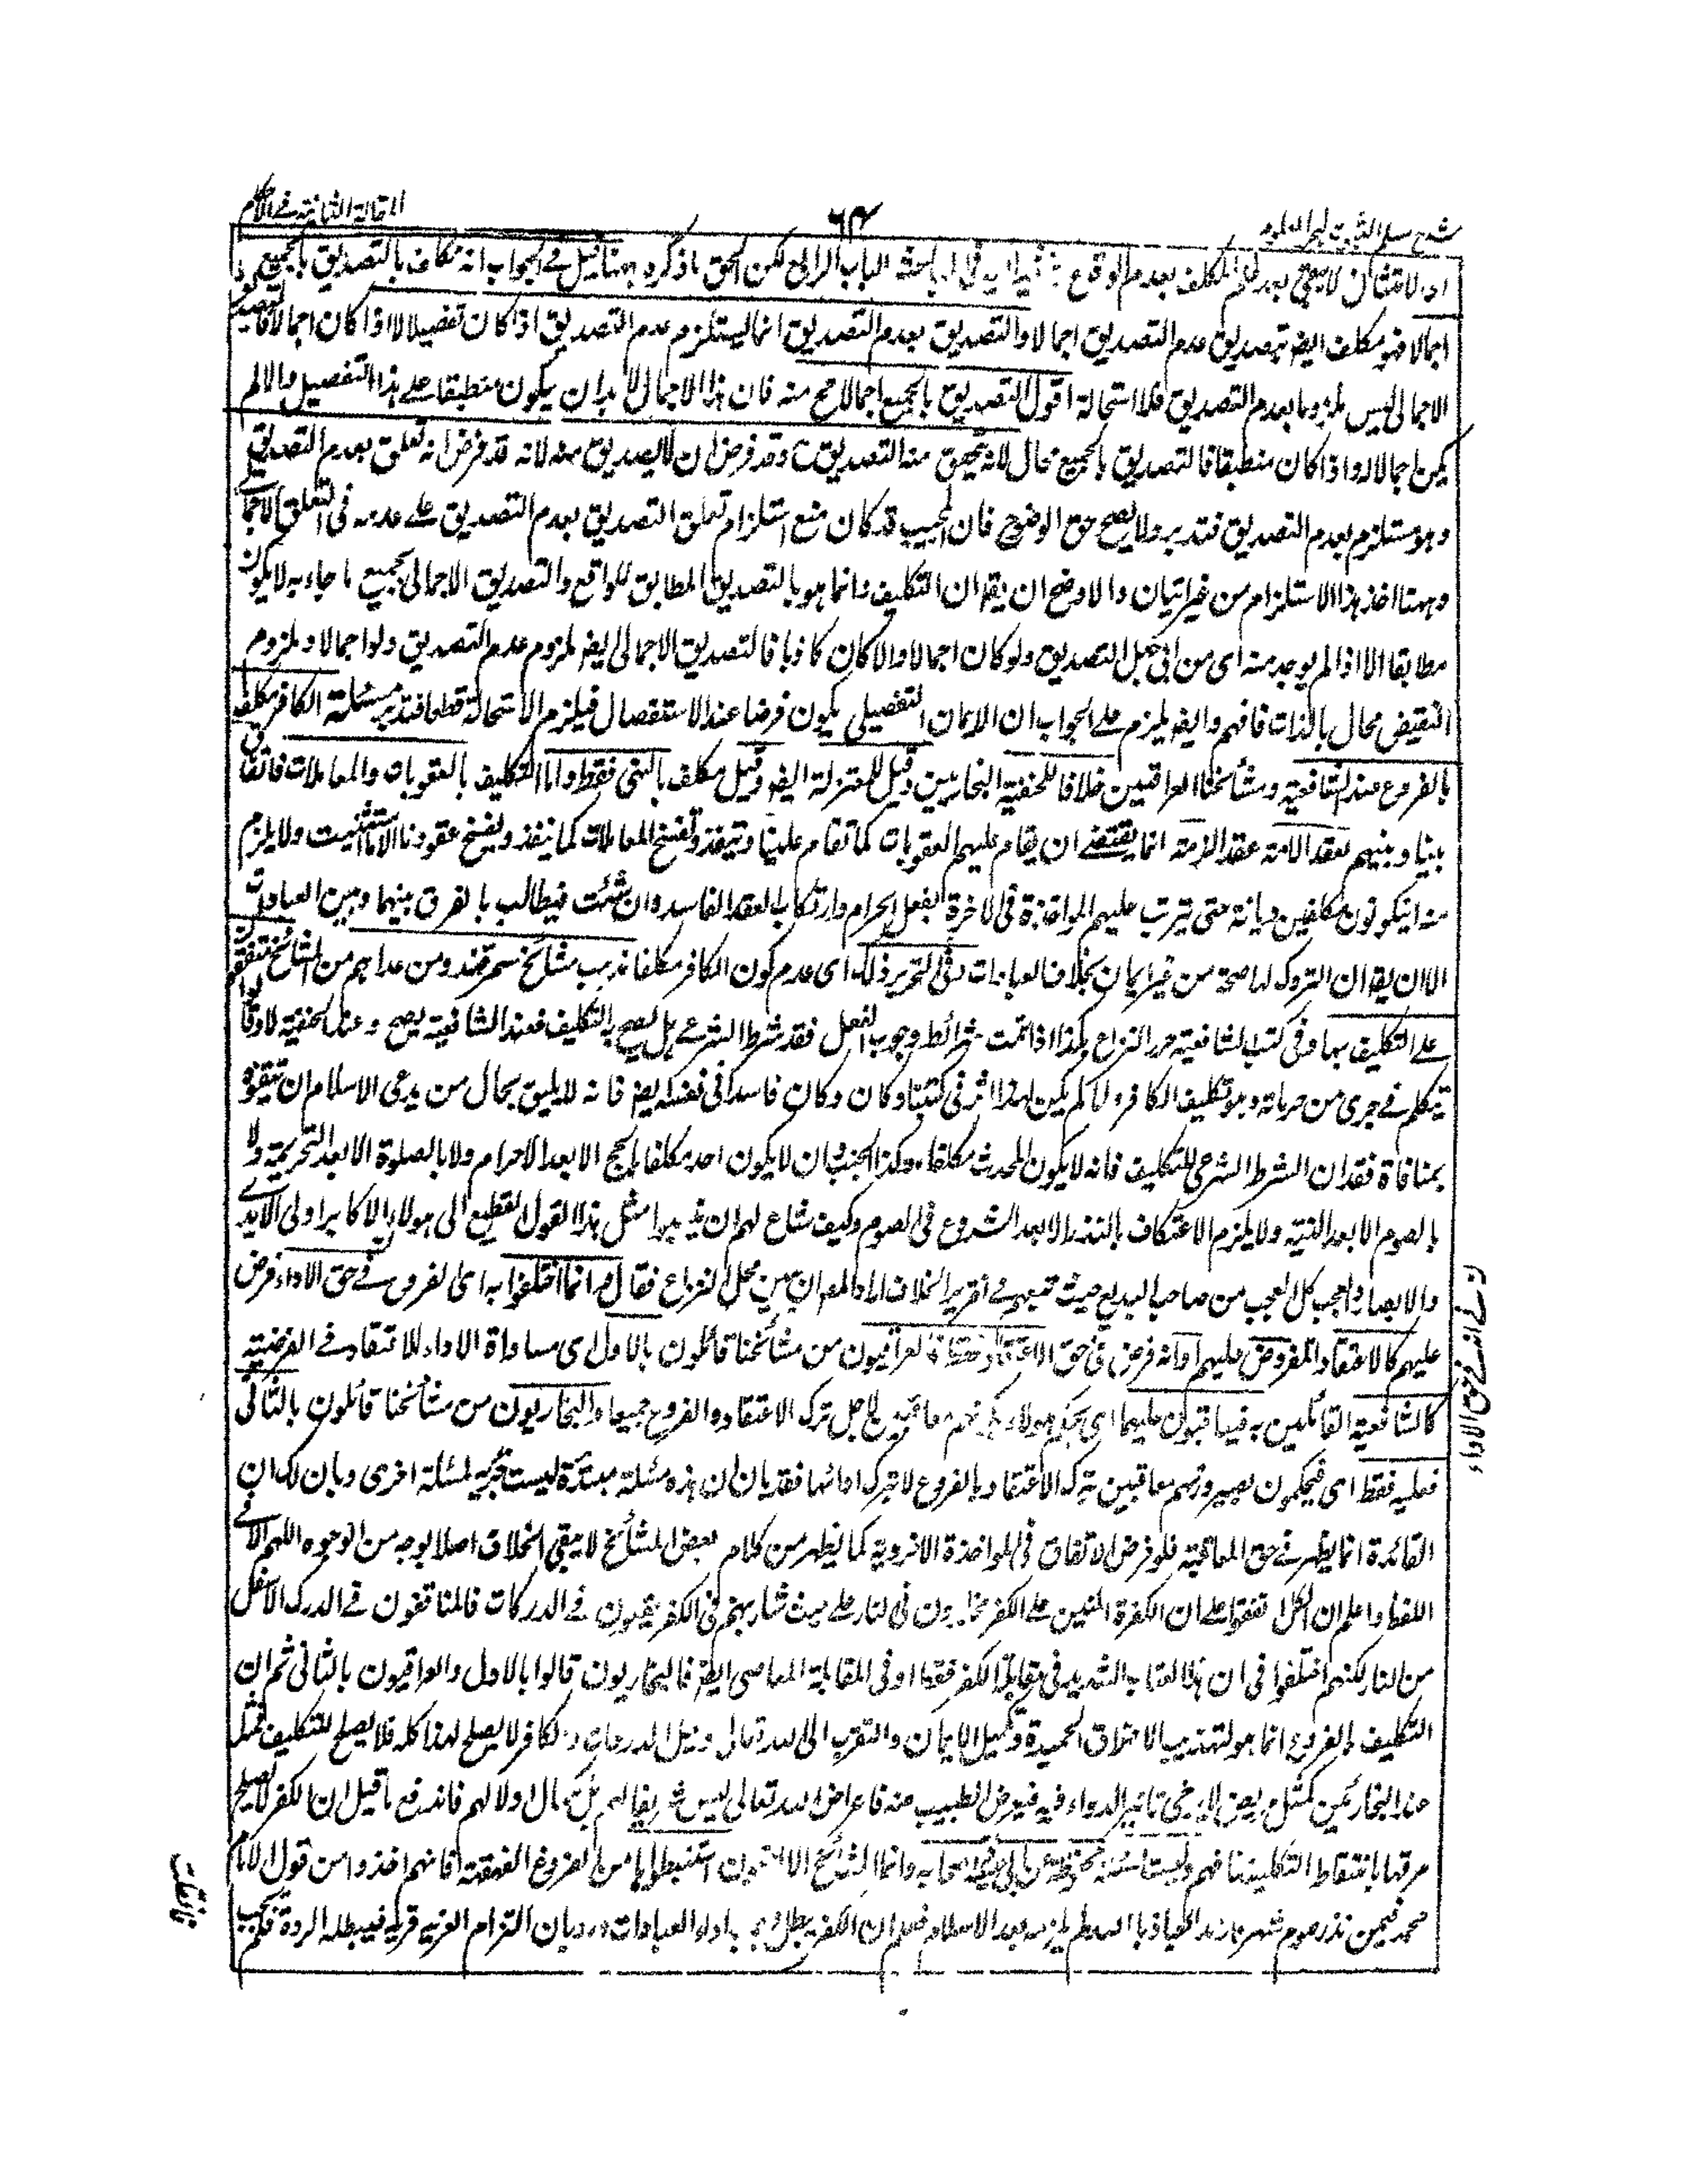 شرح مسلم الثبوت لبحر العلوم
٦٤
المقالة الثانية في الاحكام
او الامتثال لا يصح بعد علم المكلف بعدم الوقوع الباب الرابع لكن الحق ما ذكره ههنا قيل في الجواب انه مكلف بالتصديق بالجميع
اجمالا فهو مكلف ايضا بتصديق عدم التصديق اجمالا والتصديق بعدم التصديق انما يستلزم عدم التصديق اذا كان تفصيلا لا اذا كان اجمالا فالتصديق
الاجمالى ليس ملزوما بعدم التصديق فلا استحالة اقول التصديق بالجميع اجمالا مح منه فان هذا الاجمال لا بد ان يكون منطبقا على هذا التفصيل والا لم
يكن اجمالا له واذا كان منطبقا فالتصديق بالجميع محال لانه يتحقق منه التصديق ح وقد فرض ان لا تصديق منه لانه قد فرض انه تعلق بعدم التصديق
وهو مستلزم بعدم التصديق فتدبر ولا يصح حق الوضوح فان المجيب قد كان منع استلزام تعلق التصديق بعدم التصديق على عدمه فى التعلق الاجمالى
وههنا اخذ هذا الاستلزام من غير اتيان والاوضح ان يقه ان التكليف انما هو بالتصديق المطابق للواقع والتصديق الاجمالى بجميع ما جاء به لا يكون
مطابقا الا اذا لم يوجد منه اى من ابى جهل التصديق ولو كان اجمالا والا كان كاذبا فالتصديق الاجمالى ايضه ملزوم عدم التصديق ولو اجمالا وملزوم
النقيض محال بالذات فافهم وايضه يلزم على الجواب ان الايمان التفصيلى يكون فرضا عند الاستفصال فيلزم الاستحالة قطعا فتدبر مسئلة الكافر مكلف
بالفروع عند الشافعية ومشائخنا العراقيين خلافا للحنفية البخاريين وقيل للمعتزلة ايضه وقيل مكلف بالنهى فقط واما التكليف بالعقوبات والمعاملات فاتفاق
بيننا وبينهم بعقد الذمة عقد الذمة انما يقتضى ان يقام عليهم العقوبات كما تقام علينا وتنفذ وتفسخ المعاملات كما ينفذ ويفسخ عقودنا الا ما استثنيت ولا يلزم
منه ان يكونون مكلفين ديانة حتى يترتب عليهم المواخذة فى الاخرة بالفعل الحرام وارتكاب العقد الفاسد وان شئت فيطالب بالفرق بينهما وبين العبادات
الا ان يقه ان التروك لها صحة من غير ايمان بخلاف العبادات وفى التحرير ذلك اى عدم كون الكافر مكلفا مذهب مشائخ سمرقند ومن عداهم من المشائخ متفقون
على التكليف بها وفى كتب الشافعية حرر النزاع هكذا اذا تمت شرائط وجوب الفعل فقد شرط الشرعى هل يصح به التكليف فعند الشافعية يصح وعند الحنفية لا وقالوا
نتكلم فى جزئى من جزئياته وهو تكليف الكافر ولما لم يكن لهذا اثر فى كتبنا وكان فاسدا فى نفسه ايضه فانه لا يليق بحال من يدعى الاسلام ان يتفوه
بمنافاة فقدان الشرط الشرعى للتكليف فانه لا يكون المحدث مكلفا وكذا الجنب وان لا يكون احد مكلفا بالحج الا بعد الاحرام ولا بالصلوة الا بعد التحريمة ولا
بالصوم الا بعد النية ولا يلزم الاعتكاف بالنذر الا بعد الشروع فى الصوم وكيف شاع لهم ان ينسبوا مثل هذا القول الفظيع الى هولاء الاكابر اولى الايدى
والابصار والعجب كل العجب من صاحب البديع حيث تبعهم فى تقرير الخلاف اراد المصه ان يبين محل النزاع فقال وانما اختلفوا به اى الفروع فى حق الاداء فرض
عليهم كالاعتقاد المفروض عليهم او انه فرض فى حق الاعتقاد فقط فالعراقيون من مشائخنا قائلون بالاول اى مساواة الاداء للاعتقاد فى الفرضية
كالشافعية القائلين به فيعاقبون عليهما اى يحكم هولاء بكونهم معاقبين لاجل ترك الاعتقاد والفروع جميعا والبخاريون من مشائخنا قائلون بالثانى
فعليه فقط اى فيحكمون بصيرورتهم معاقبين بترك الاعتقاد بالفروع لا بترك ادائها فقد بان ان هذه مسئلة مبتدءة ليست جزئية لمسئلة اخرى وبان لك ان
الفائدة انما يظهر فى حق المعاقبة فلو فرض الاتفاق فى المواخذة الاخروية كما يظهر من كلام بعض المشائخ لا يبقى الخلاف اصلا بوجه من الوجوه اللهم الا فى
اللفظ واعلم ان الكل اتفقوا على ان الكفرة الميتين على الكفر مخلدون فى النار على حيث مشاربهم فى الكفر يقيمون فى الدركات فالمنافقون فى الدرك الاسفل
من النار لكنهم اختلفوا فى ان هذا العقاب الشديد فى مقابلة الكفر فقط او فى المقابلة المعاصى ايضه فالبخاريون قالوا بالاول والعراقيون بالثانى ثم ان
التكليف بالفروع انما هو لتهذيب الاخلاق الحميدة وتكميل الايمان والتقرب الى الله تعالى ونيل الدرجات والكافر لا يصلح لهذا كله فلا يصلح للتكليف فمثله
عند البخاريين كمثل مريض لا يرجى تاثير الدواء فيه فيعرض الطبيب عنه فاعراض الله تعالى ليس تشريفا لهم بل نكال اولا لهم فاندفع ما قيل ان الكفر لا يصلح
مرفها باسقاط التكليف عنا فافهم وليست المسئلة محفوظة عن ابى حنيفة واصحابه وانما المشائخ استنبطوها من الفروع الفقهية فانهم اخذوا من قول الامام
محمد فيمن نذر صوم شهر فارتد العياذ بالله لم يلزمه بعد الاسلام فعلم ان الكفر يبطل وجوب اداء العبادات ورد بان التزام القربة قربة فيبطله الردة فلم يجب